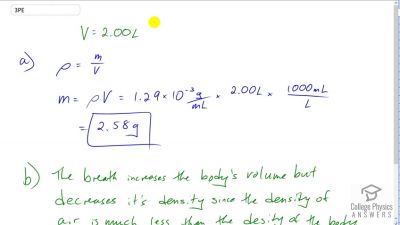 3PE
V = 2.00L
a) ρ = m/V
m = ρV = 1.29 × 10⁻³ g/mL × 2.00L × 1000mL/L
= 2.58g
b) The breath increases the body's volume but
decreases it's density since the density of
air is much less than the desity of the body
College Physics
ANSWERS